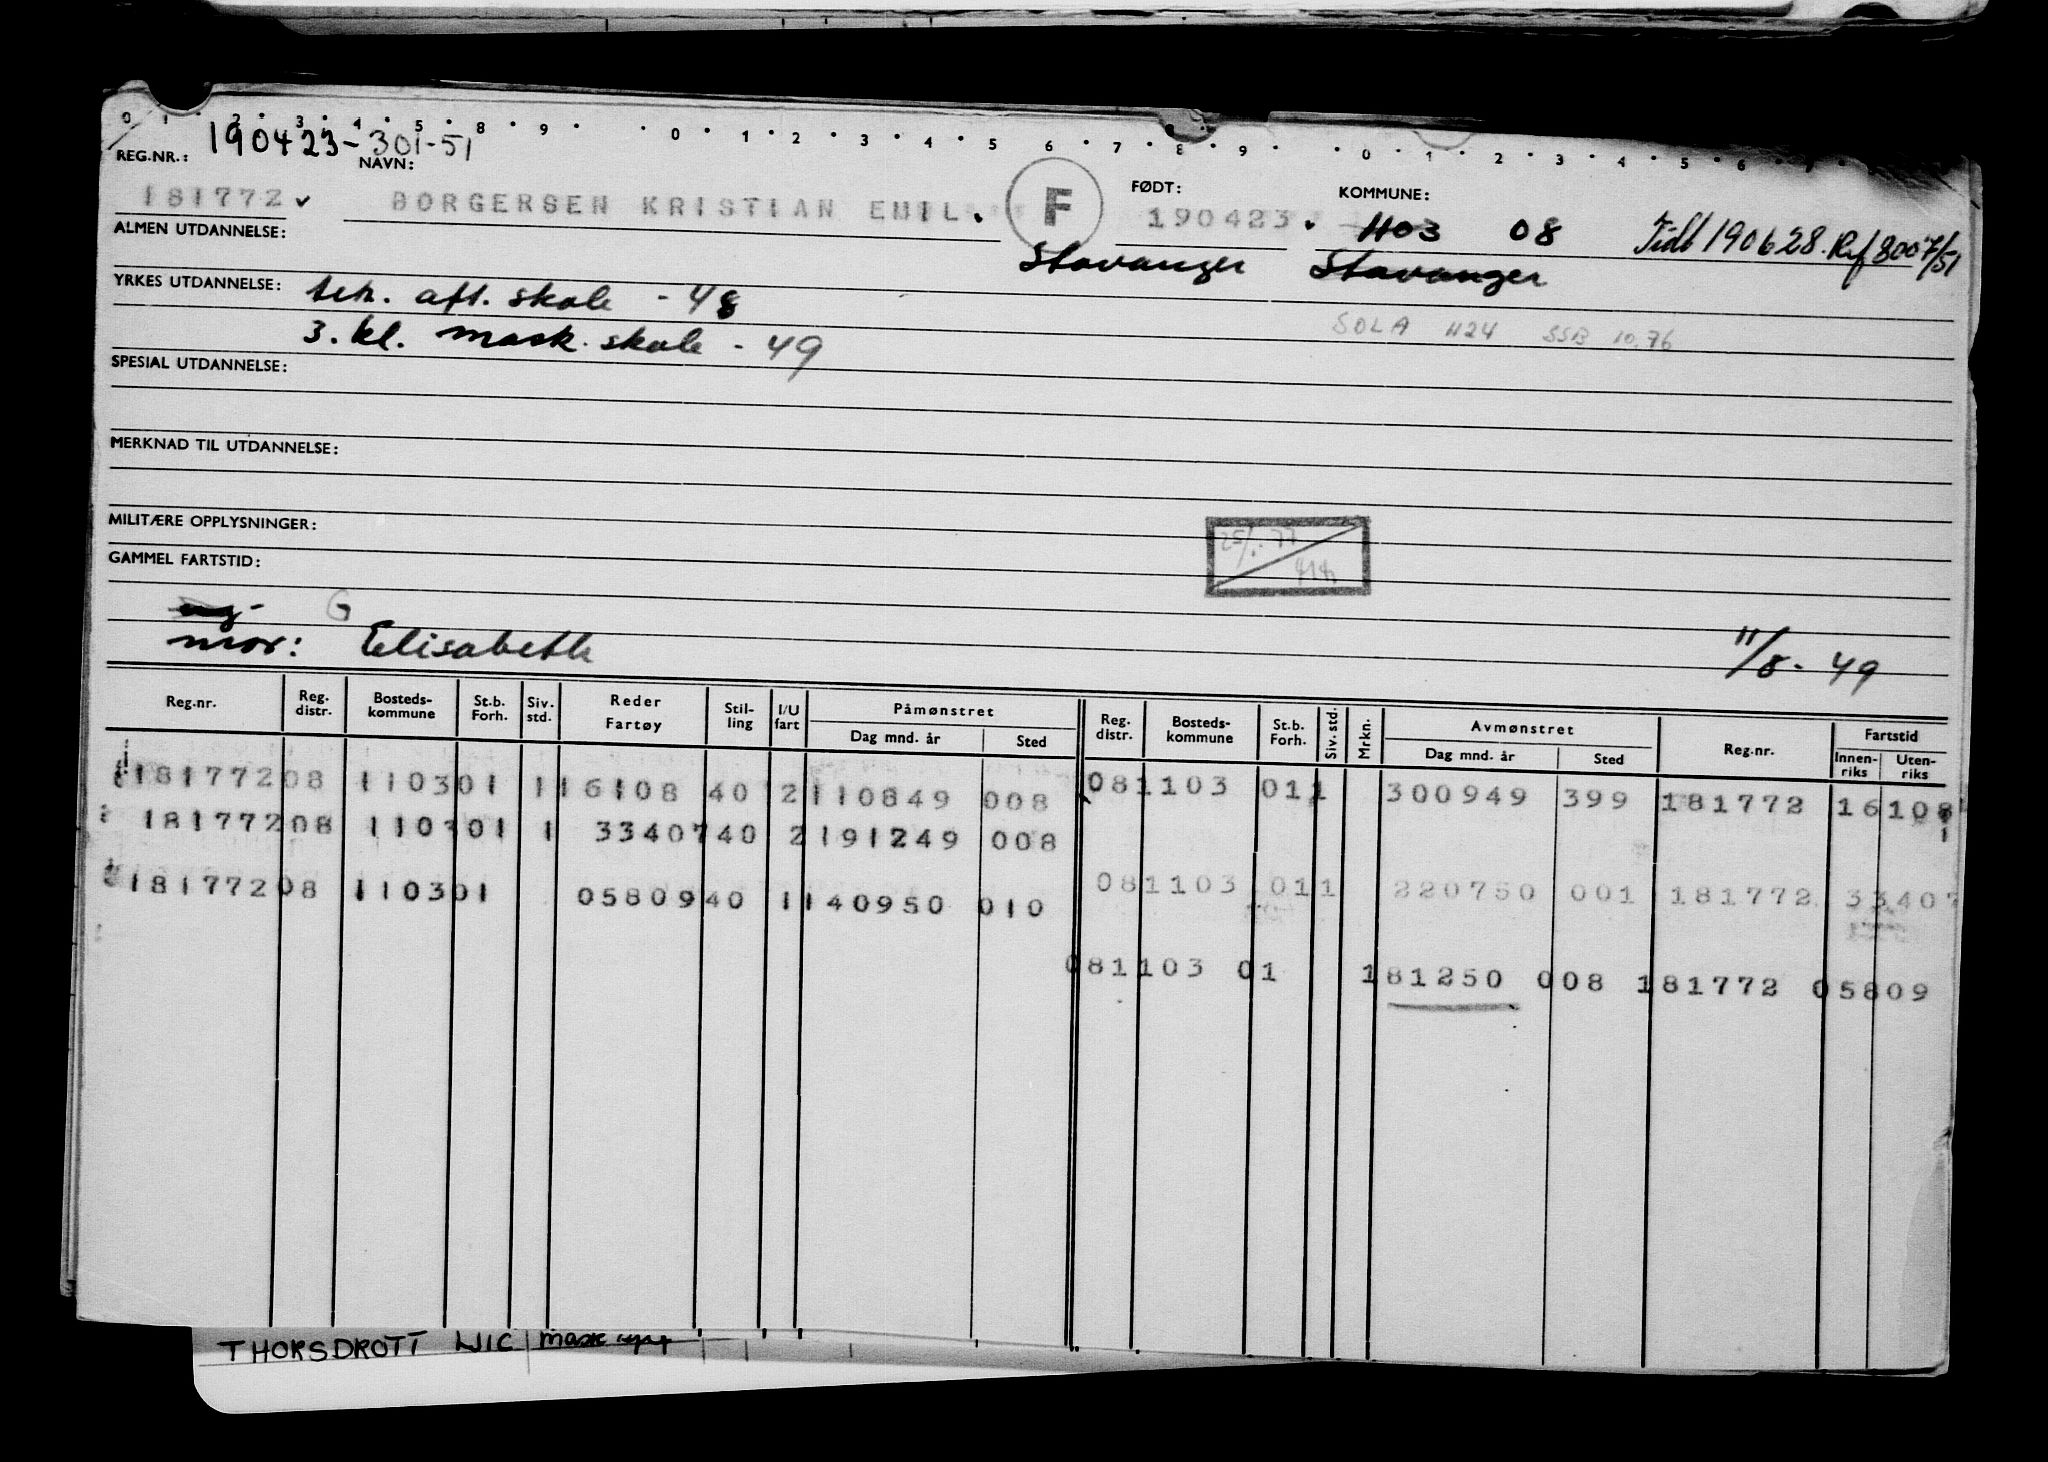 0 1 2 3 4 5 8 9 0 1 2 3 4 5 6 7 8 9 0 1 2 3 4 5 6 7
REG.NR.: 190423-301-51 NAVN: FØDT: KOMMUNE:
181772 BORGERSEN KRISTIAN EMIL. F 190423. 1103 08 Tidl 190628. Ref 8007/51
ALMEN UTDANNELSE: Stavanger Stavanger
YRKES UTDANNELSE: teh. aft. skole - 48
3. kl. mask. skole - 49 SOLA 1124 SSB 10.76
SPESIAL UTDANNELSE:
MERKNAD TIL UTDANNELSE:
MILITÆRE OPPLYSNINGER:
GAMMEL FARTSTID:
G
mor: Elisabeth 11/8-49
Reg.nr. Reg. distr. Bosteds-kommune St.b. Forh. Siv. std. Reder Fartøy Stil-ling I/U fart Påmønstret Dag mnd. år Sted Reg. distr. Bosteds-kommune St.b. Forh. Siv. std. Mrkn. Avmønstret Dag mnd. år Sted Reg.nr. Fartstid Innen-riks Uten-riks
181772 08 1103 01 1 16108 40 2 110849 008 08 1103 01 1 300949 399 181772 16108
181772 08 1103 01 1 33407 40 2 191249 008
08 1103 01 1 220750 001 181772 33407
181772 08 1103 01 05809 40 1 140950 010
08 1103 01 181250 008 181772 05809
THORSDROTT WIC mask